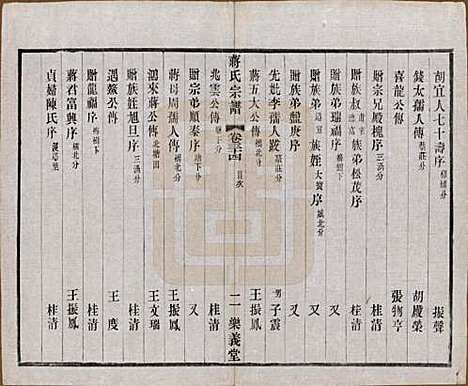 胡宜人七十壽序 橋北分 振聲
錢太孺人傳 蔡莊分 胡殿榮
喜龍公傳 張物亨
贈宗兄殿槐序 三溈分 桂清
贈族叔 弟松茂序 桂清
贈族弟瑞福序 又
贈族弟 族姪大寶序 橋北分 又
贈族弟 庚序 又
先妣李孺人跋 蔡莊分 男子震
蔣五大公傳 橋北分 王振鳳
蔣氏宗譜 卷三十四 目次 二 樂義堂
兆雲公傳 下分 又
贈宗弟順泰序 下分 桂清
蔣母周孺人傳 橋北分 王振鳳
鴻來蔣公傳 北分 王文瑞
遇 公傳 王度
贈族姪旭旦序 三溈分 桂清
贈龍福序 下分 桂清
蔣君富興序 橋北分 王振鳳
貞婦陳氏序 桂清